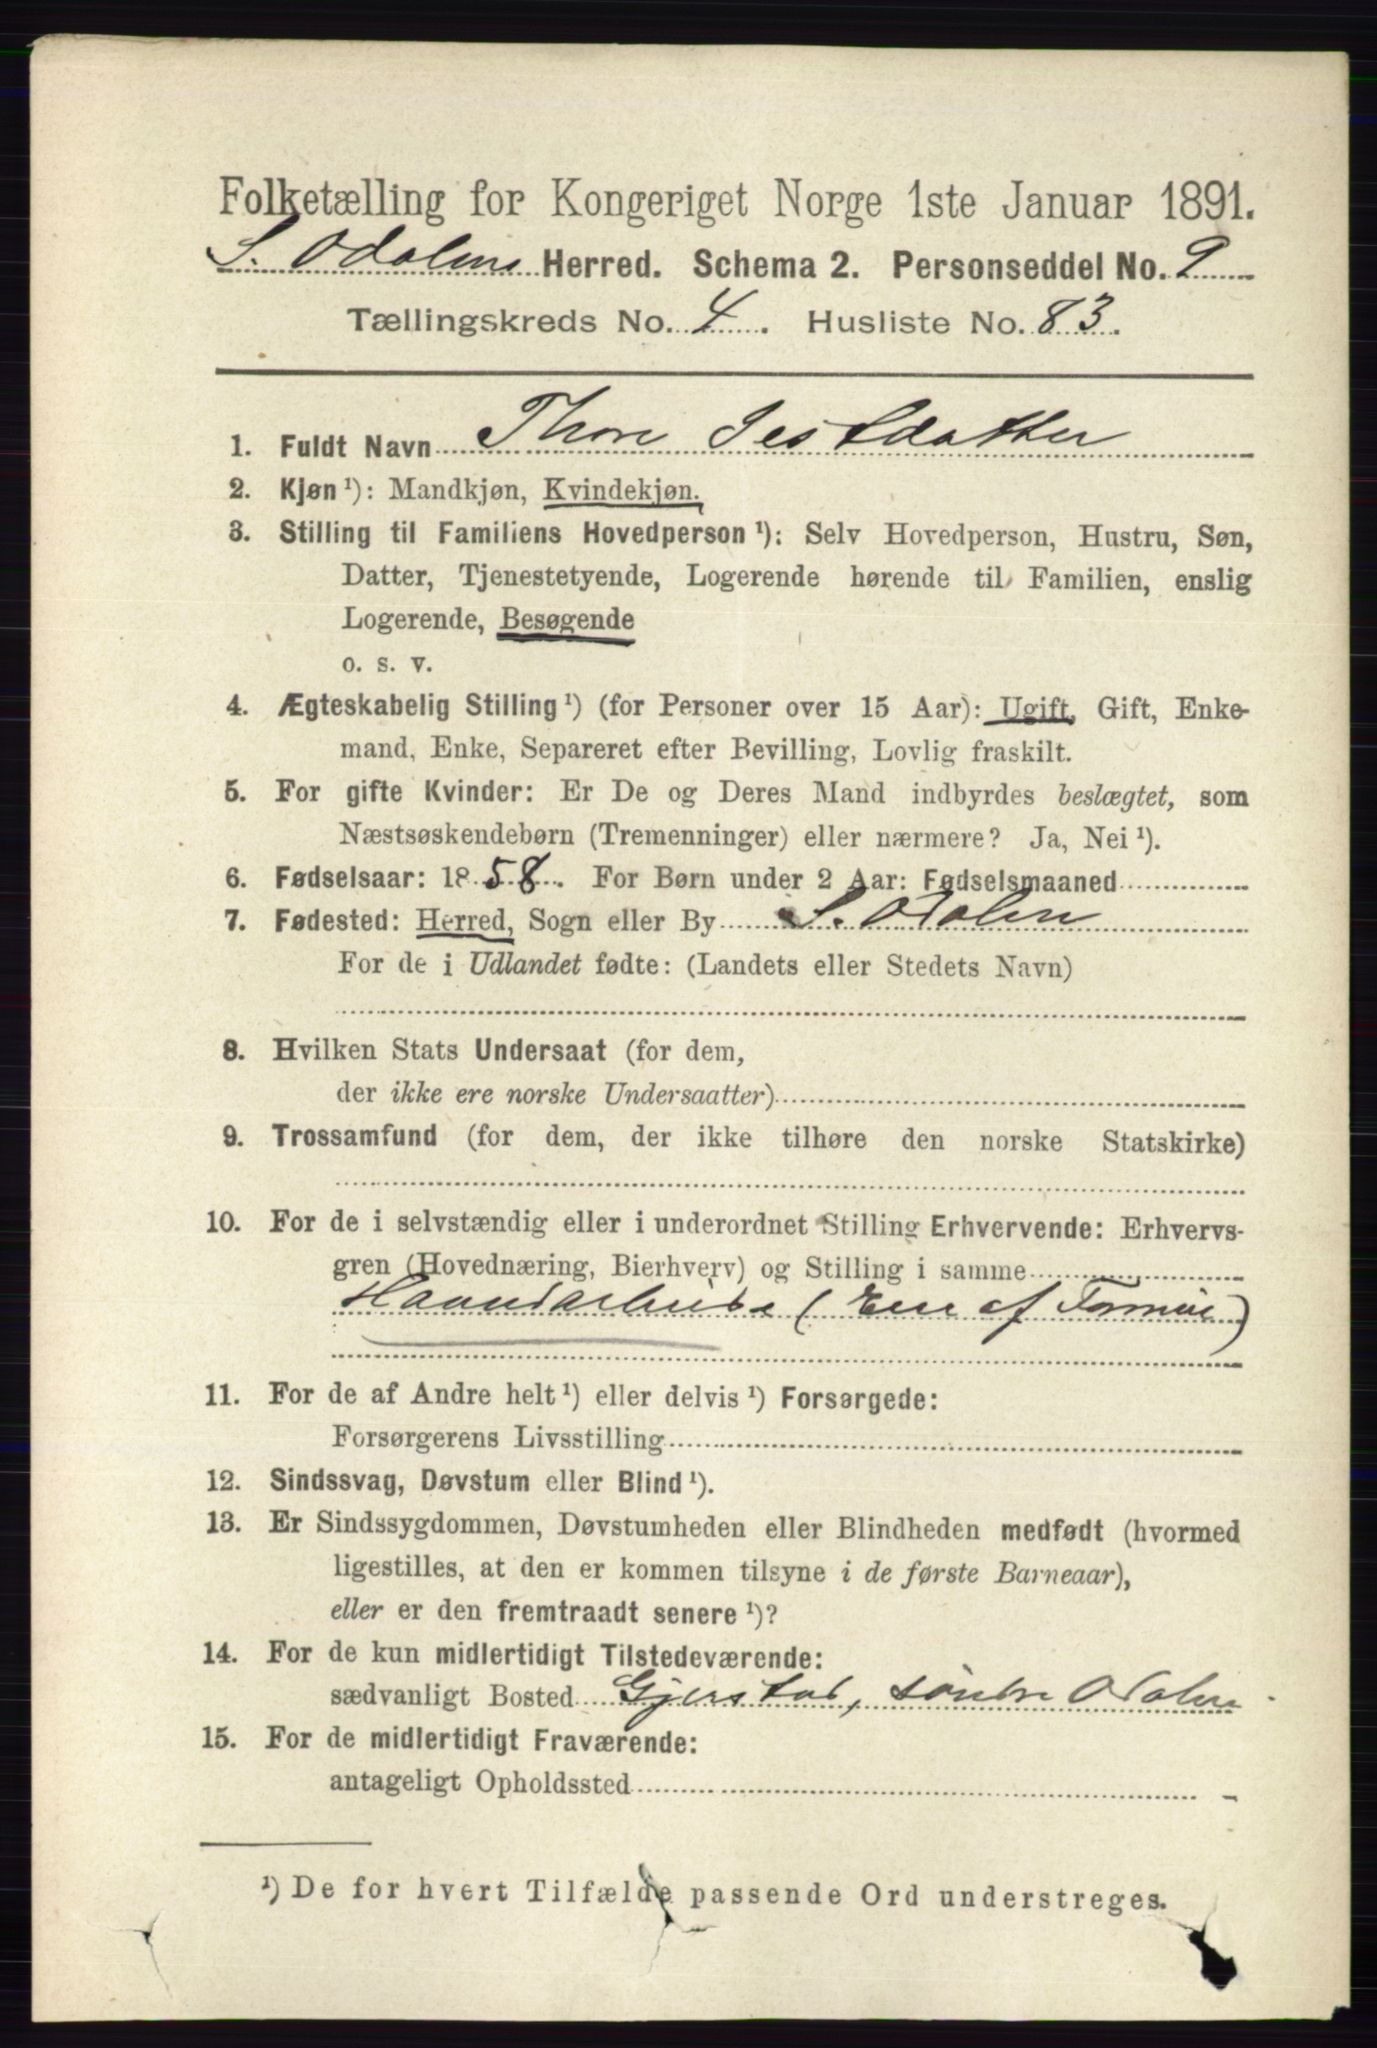 Folketælling for Kongeriget Norge 1ste Januar 1891.
S. Odalens Herred. Schema 2. Personseddel No. 9
Tællingskreds No. 4. Husliste No. 83.
1. Fuldt Navn Thore
2. Kjøn ¹): Mandkjøn, Kvindekjøn.
3. Stilling til Familiens Hovedperson ¹): Selv Hovedperson, Hustru, Søn,
Datter, Tjenestetyende, Logerende hørende til Familien, enslig
Logerende, Besøgende
o. s. v.
4. Ægteskabelig Stilling ¹) (for Personer over 15 Aar): Ugift, Gift, Enke-
mand, Enke, Separeret efter Bevilling, Lovlig fraskilt.
5. For gifte Kvinder: Er De og Deres Mand indbyrdes beslægtet, som
Næstsøskendebørn (Tremenninger) eller nærmere? Ja, Nei ¹).
6. Fødselsaar: 1858. For Børn under 2 Aar: Fødselsmaaned
7. Fødested: Herred, Sogn eller By S. Odalen
For de i Udlandet fødte: (Landets eller Stedets Navn)
8. Hvilken Stats Undersaat (for dem,
der ikke ere norske Undersaatter)
9. Trossamfund (for dem, der ikke tilhøre den norske Statskirke)
10. For de i selvstændig eller i underordnet Stilling Erhvervende: Erhvervs-
gren (Hovednæring, Bierhverv) og Stilling i samme
Haandarbeide ( af )
11. For de af Andre helt ¹) eller delvis ¹) Forsørgede:
Forsørgerens Livsstilling
12. Sindssvag, Døvstum eller Blind ¹).
13. Er Sindssygdommen, Døvstumheden eller Blindheden medfødt (hvormed
ligestilles, at den er kommen tilsyne i de første Barneaar),
eller er den fremtraadt senere ¹)?
14. For de kun midlertidigt Tilstedeværende:
sædvanligt Bosted Gjerstad, søndre Odalen
15. For de midlertidigt Fraværende:
antageligt Opholdssted
¹) De for hvert Tilfælde passende Ord understreges.